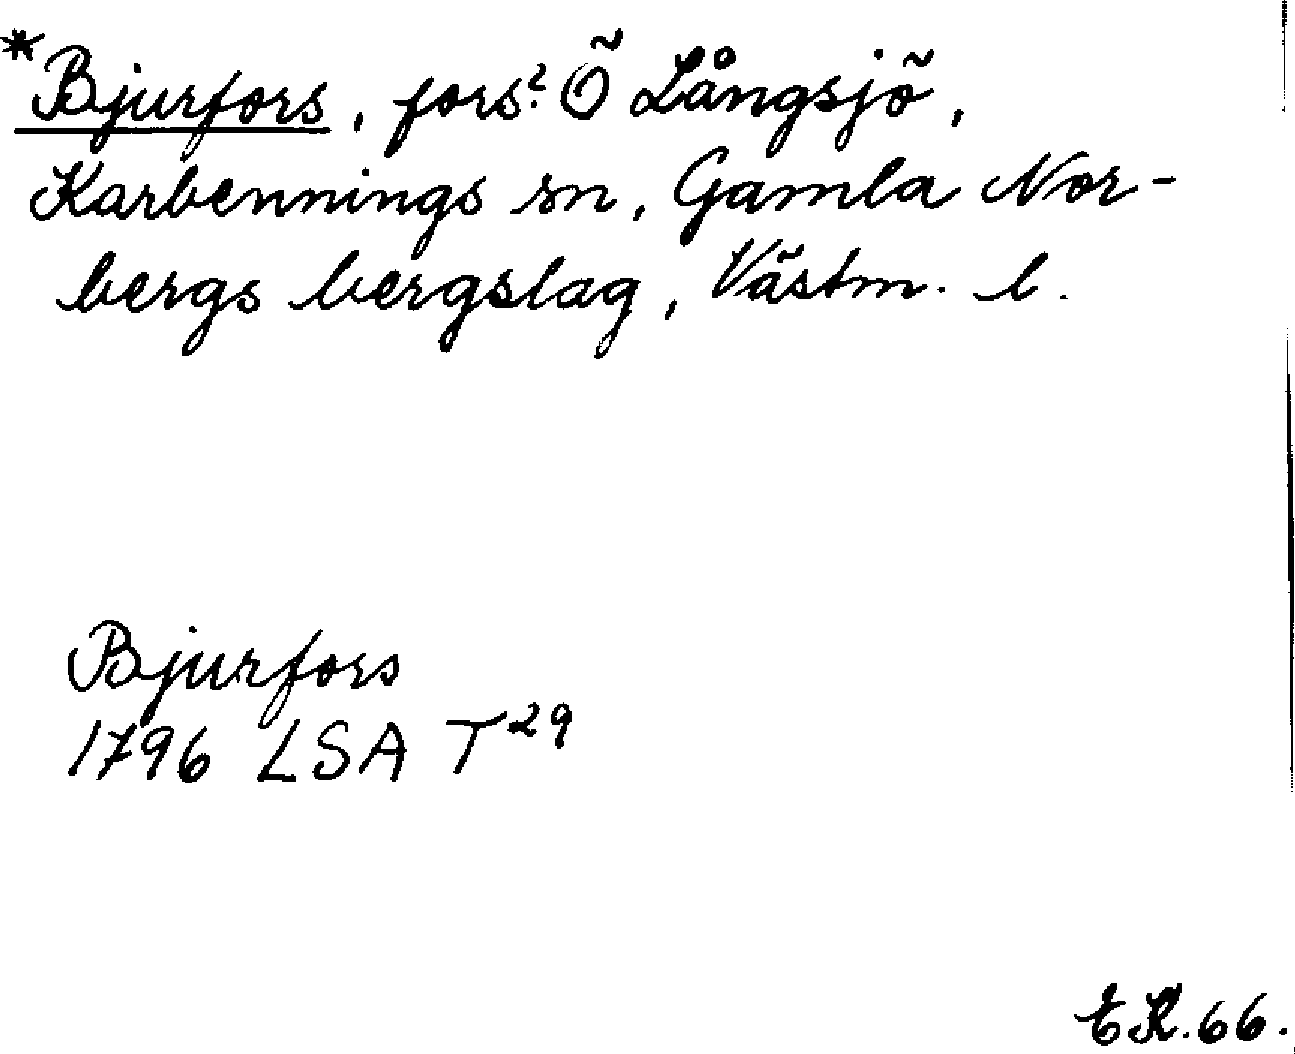 *Bjurfors, fors? Ö Långsjö,
Karbennings sn, Gamla Nor-
bergs bergslag, Västm. l.
Bjurfors
1796 LSA T29
EK.66.